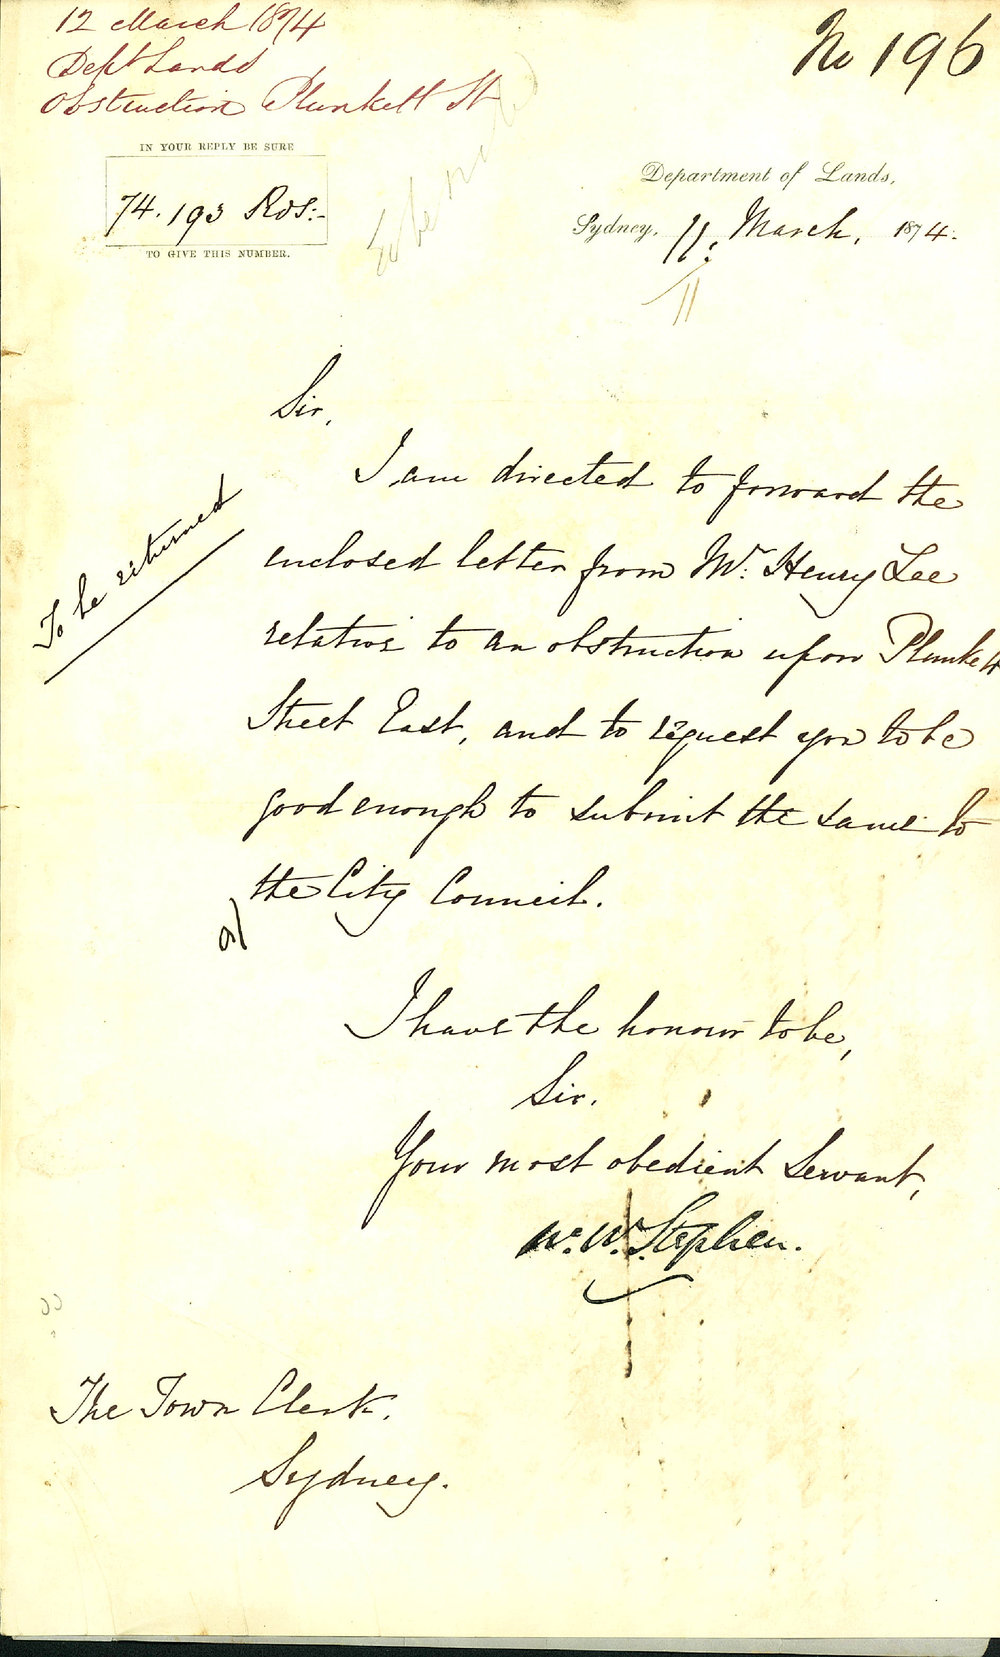 12 March 1874
Dept Lands
Obstruction Plunkett St
No 196
IN YOUR REPLY BE SURE
74.193 Rds:-
TO GIVE THIS NUMBER.
Department of Lands,
Sydney, 11. March, 1874.
To be returned
Sir,
I am directed to forward the
enclosed letter from Mr. Henry Lee
relative to an obstruction upon Plunkett
Street East, and to request you to be
good enough to submit the same to
the City Council.
I have the honour to be,
Sir.
Your most obedient Servant,
W. W. Stephen.
The Town Clerk.
Sydney.